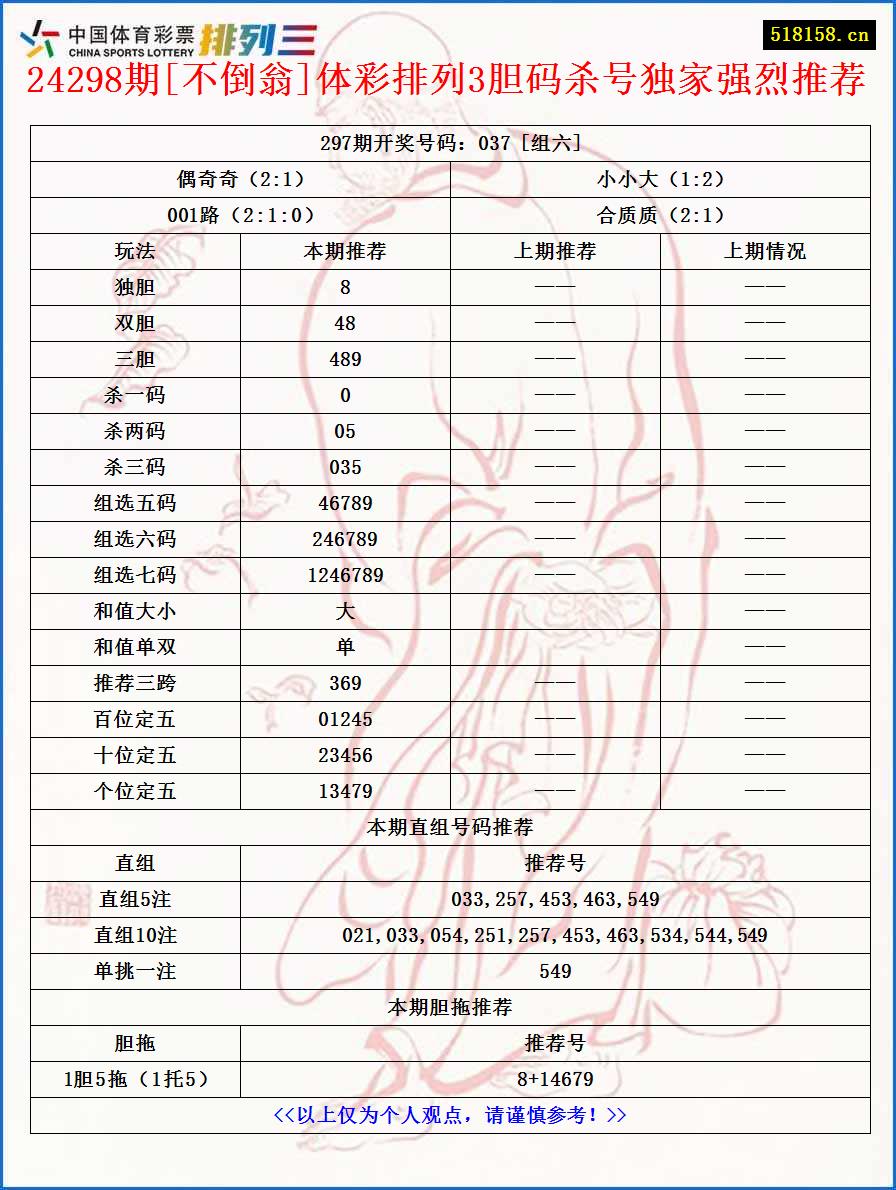 中国体育彩票 排列三
CHINA SPORTS LOTTERY
518158.cn
24298期[不倒翁]体彩排列3胆码杀号独家强烈推荐
297期开奖号码：037 [组六]
偶奇奇（2:1） 小小大（1:2）
001路（2:1:0） 合质质（2:1）
玩法 本期推荐 上期推荐 上期情况
独胆 8 —— ——
双胆 48 —— ——
三胆 489 —— ——
杀一码 0 —— ——
杀两码 05 —— ——
杀三码 035 —— ——
组选五码 46789 —— ——
组选六码 246789 —— ——
组选七码 1246789 —— ——
和值大小 大 ——
和值单双 单 ——
推荐三跨 369 —— ——
百位定五 01245 —— ——
十位定五 23456 —— ——
个位定五 13479 —— ——
本期直组号码推荐
直组 推荐号
直组5注 033,257,453,463,549
直组10注 021,033,054,251,257,453,463,534,544,549
单挑一注 549
本期胆拖推荐
胆拖 推荐号
1胆5拖（1托5） 8+14679
<<以上仅为个人观点，请谨慎参考！>>